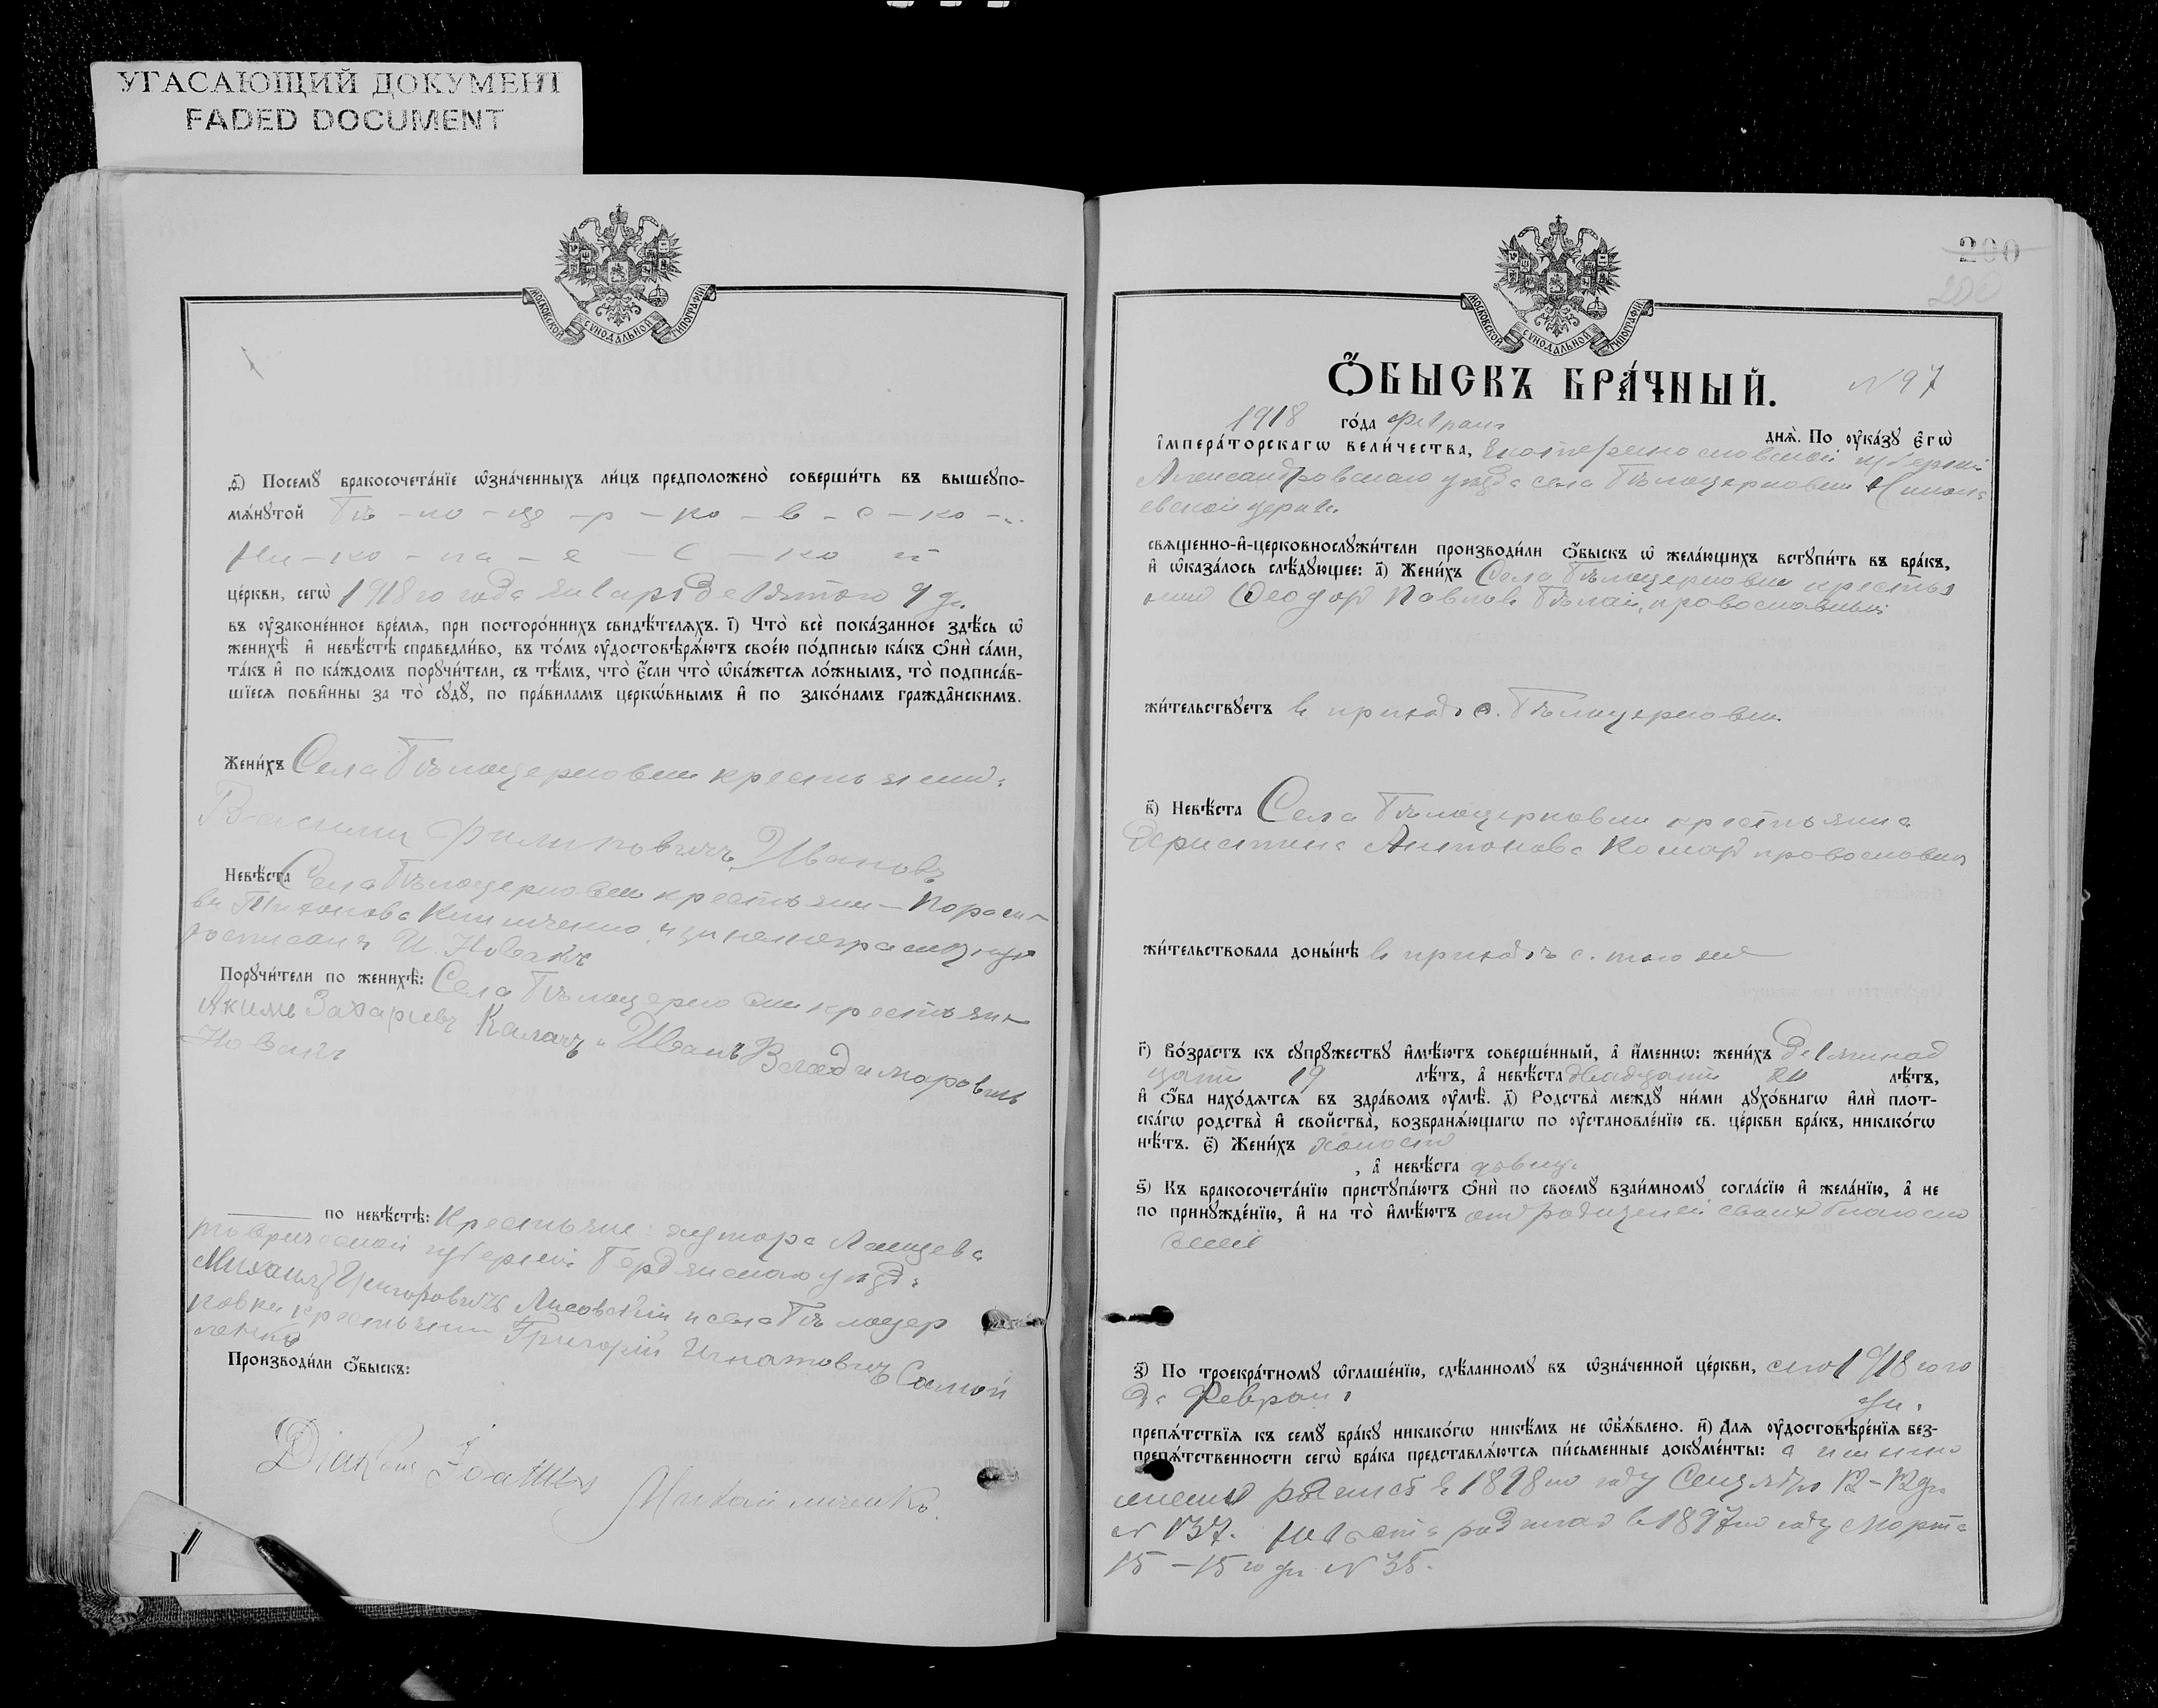 УГАСАЮЩИЙ ДОКУМЕНТ
FADED DOCUMENT
МОСКОВСКОЙ СѴНОДАЛЬНОЙ ТИПОГРАФІИ
ѳ҃) Посемꙋ̀ бракосочета́нїе ѡ҆зна́ченныхъ ли́цъ предположено̀ соверши́ть въ вышеꙋпо-
мѧ́нꙋтой Бѣ-ло-це-р-ко-в-с-ко-й
Ни-ко-ла-е-с-ко й
це́ркви, сегѡ̀ 1918 го года Января Девятого 9 дн.
въ ᲂу҆зако́ненное вре́мѧ, при посторо́ннихъ свидѣ́телѧхъ. і҃) Что̀ всѐ пока́занное здѣ́сь ѡ҆
женихѣ̀ и҆ невѣ́стѣ справедли́во, въ то́мъ ᲂу҆достовѣрѧ́ютъ свое́ю по́дписью ка́къ ѻ҆нѝ са́ми,
та́къ и҆ по ка́ждомъ порꙋчи́тели, съ тѣ́мъ, что̀ є҆́сли что̀ ѡ҆ка́жетсѧ ло́жнымъ, то̀ подписа́в-
шїесѧ пови́нны за то̀ сꙋдꙋ̀, по пра́виламъ церкѡ́внымъ и҆ по зако́намъ гражда́нскимъ.
Жени́хъ Села Бѣлоцерковки крестьянинъ
Василий Филиповичъ Ивановъ
Невѣ́ста Села Бѣлоцерковки крестьян— Параске
ва Тихонова неграмотную
росписалъ И. Новакъ
Порꙋчи́тели по женихѣ̀: Села Бѣлоцерковки крестьян
Акимъ Захаріевъ Калачъ и Иванъ Владимировичъ
Новакъ
по невѣ́стѣ: Крестьяне: хутора
Таврической губерніи Бердянского уѣзда
Михаилъ Григоровичъ Лисовский и села Бѣлоцер
ковки крестьянин Григорий Игнатовичъ Самой
ленко
Производи́ли ѻ҆́быскъ:
Діаконъ Іоаннъ
Михайличенко.
200
МОСКОВСКОЙ СѴНОДАЛЬНОЙ ТИПОГРАФІИ
Ѻ҆́БЫСКЪ БРА́ЧНЫЙ. N 97
1918 го́да Февраля днѧ̀. По ᲂу҆ка́зꙋ є҆гѡ̀
і҆мпера́торскагѡ вели́чества, Екатеринославской губерніи
Александровскаго уѣзда села Бѣлоцерковки Никола
евской церкви
свѧще́нно-и҆-церковнослꙋжи́тели производи́ли ѻ҆́быскъ ѡ҆ жела́ющихъ встꙋпи́ть въ бра́къ,
и҆ ѡ҆каза́лось слѣ́дꙋющее: а҃) Жени́хъ Села Бѣлоцерковки крестья
нин Ѳеодор Павлов Бѣлай, православный
жи́тельствꙋетъ в приходѣ с. Бѣлоцерковки
в҃) Невѣ́ста Села Бѣлоцерковки крестьянка
Антонова Комар православна
жи́тельствовала доны́нѣ в приходѣ с. того же
г҃) Во́зрастъ къ сꙋпрꙋ́жествꙋ и҆мѣ́ютъ соверше́нный, а҆ и҆́меннѡ: жени́хъ Девятнад
цати 19 лѣ́тъ, а҆ невѣ́ста двадцати 20 лѣ́тъ,
и҆ ѻ҆́ба нахо́дѧтсѧ въ здра́вомъ ᲂу҆мѣ̀. д҃) Родства̀ междꙋ ни́ми дꙋхо́внагѡ и҆лѝ пло́т-
скагѡ родства̀ и҆ сво́йства, возбранѧ́ющагѡ по ᲂу҆становле́нїю св. це́ркви бра́къ, никако́гѡ
нѣ́тъ. є҃) Жени́хъ холост
, а҆ невѣ́ста дѣвица
ѕ҃) Къ бракосочета́нїю пристꙋпа́ютъ ѻ҆нѝ по своемꙋ̀ взаи́мномꙋ согла́сїю и҆ жела́нїю, а҆ не
по принꙋжде́нїю, и҆ на то̀ и҆мѣ́ютъ от родителей своих благосло
вение
з҃) По троекра́тномꙋ ѡ҆глаше́нїю, сдѣ́ланномꙋ въ ѡ҆зна́ченной це́ркви, сего 1918 го го
да Февраля дн.
препѧ́тствїѧ къ семꙋ̀ бра́кꙋ никако́гѡ никѣ́мъ не ѡ҆б̾ѧ́влено. и҃) Для ᲂу҆достовѣре́нїѧ без-
препѧ́тственности сегѡ̀ бра́ка представлѧ́ютсѧ пи́сьменные докꙋме́нты: а именно
жених родился в 1898 го году Сентября 12-12 дн.
N 137. Невѣста родилась в 1897 го году Марта
15-15 го дн N 35.